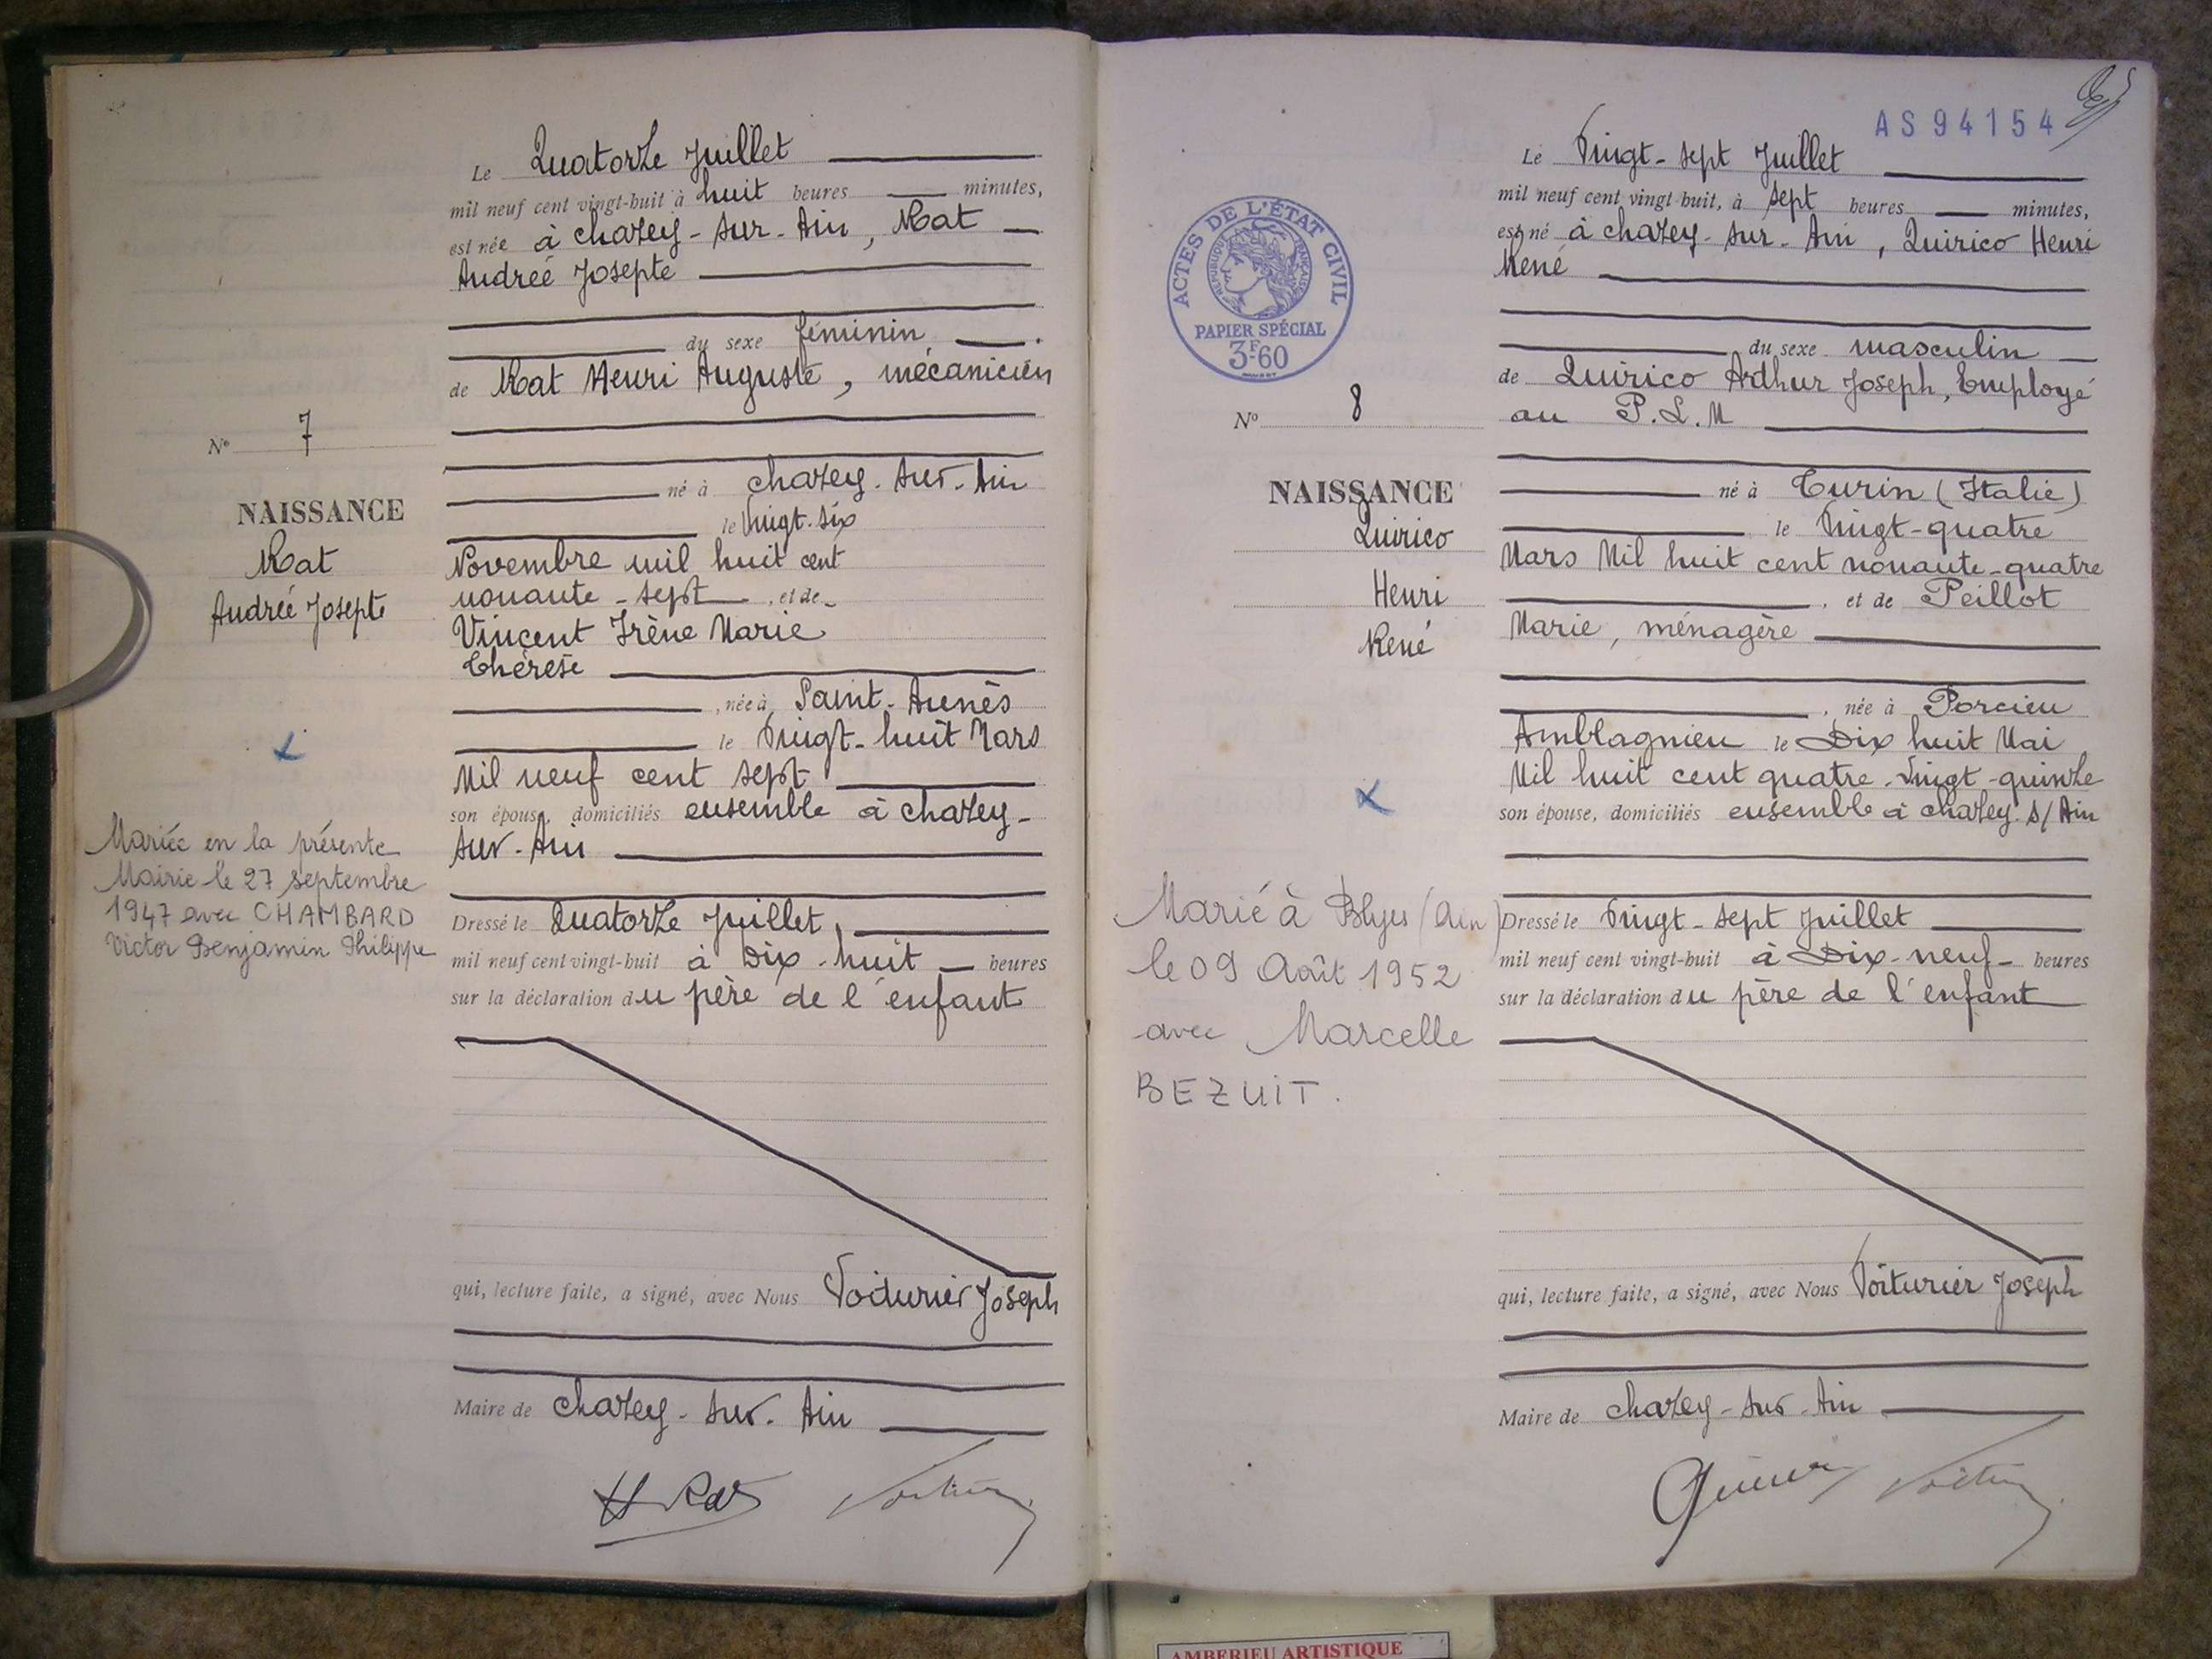 Le Quatorze Juillet
mil neuf cent vingt-huit à huit heures minutes,
est née à chazey-sur-Ain, Rat
Andréé Josepte
du sexe féminin
de Rat Henri Auguste, mécanicien
né à chazey-sur-Ain
le Vingt-six
Novembre mil huit cent
nonante-sept, et de
Vincent Irène Marie
Thérèse
, née à Saint-Aunès
le Vingt-huit Mars
Mil neuf cent sept
son épouse, domiciliés ensemble à chazey-
sur-Ain
Dressé le Quatorze Juillet,
mil neuf cent vingt-huit à Dix-huit heures
sur la déclaration du père de l'enfant
qui, lecture faite, a signé, avec Nous Voiturier Joseph
Maire de chazey-sur-Ain
H Rat
N° 7
NAISSANCE
Rat
Andréé Josepte
Mariée en la présente
Mairie le 27 septembre
1947 avec CHAMBARD
Victor Benjamin Philippe
AS94154
Le Vingt-sept Juillet
mil neuf cent vingt-huit, à sept heures minutes,
est né à chazey-sur-Ain, Quirico Henri
René
du sexe masculin
de Quirico Arthur Joseph, Employé
au P.L.M
né à Turin (Italie)
le Vingt-quatre
Mars Mil huit cent nonante-quatre
, et de Peillot
Marie, ménagère
, née à Porcieu
Amblagnieu le Dix huit Mai
Mil huit cent quatre-Vingt-quinze
son épouse, domiciliés ensemble à chazey s/Ain
Dressé le Vingt-sept Juillet
mil neuf cent vingt-huit à Dix-neuf heures
sur la déclaration du père de l'enfant
qui, lecture faite, a signé, avec Nous Voiturier Joseph
Maire de chazey-sur-Ain
ACTES DE L'ÉTAT CIVIL
RÉPUBLIQUE FRANÇAISE
PAPIER SPÉCIAL
3F60
N° 8
NAISSANCE
Quirico
Henri
René
Marié à Blyes (Ain)
le 09 Août 1952
avec Marcelle
BEZUIT.
AMBERIEU ARTISTIQUE